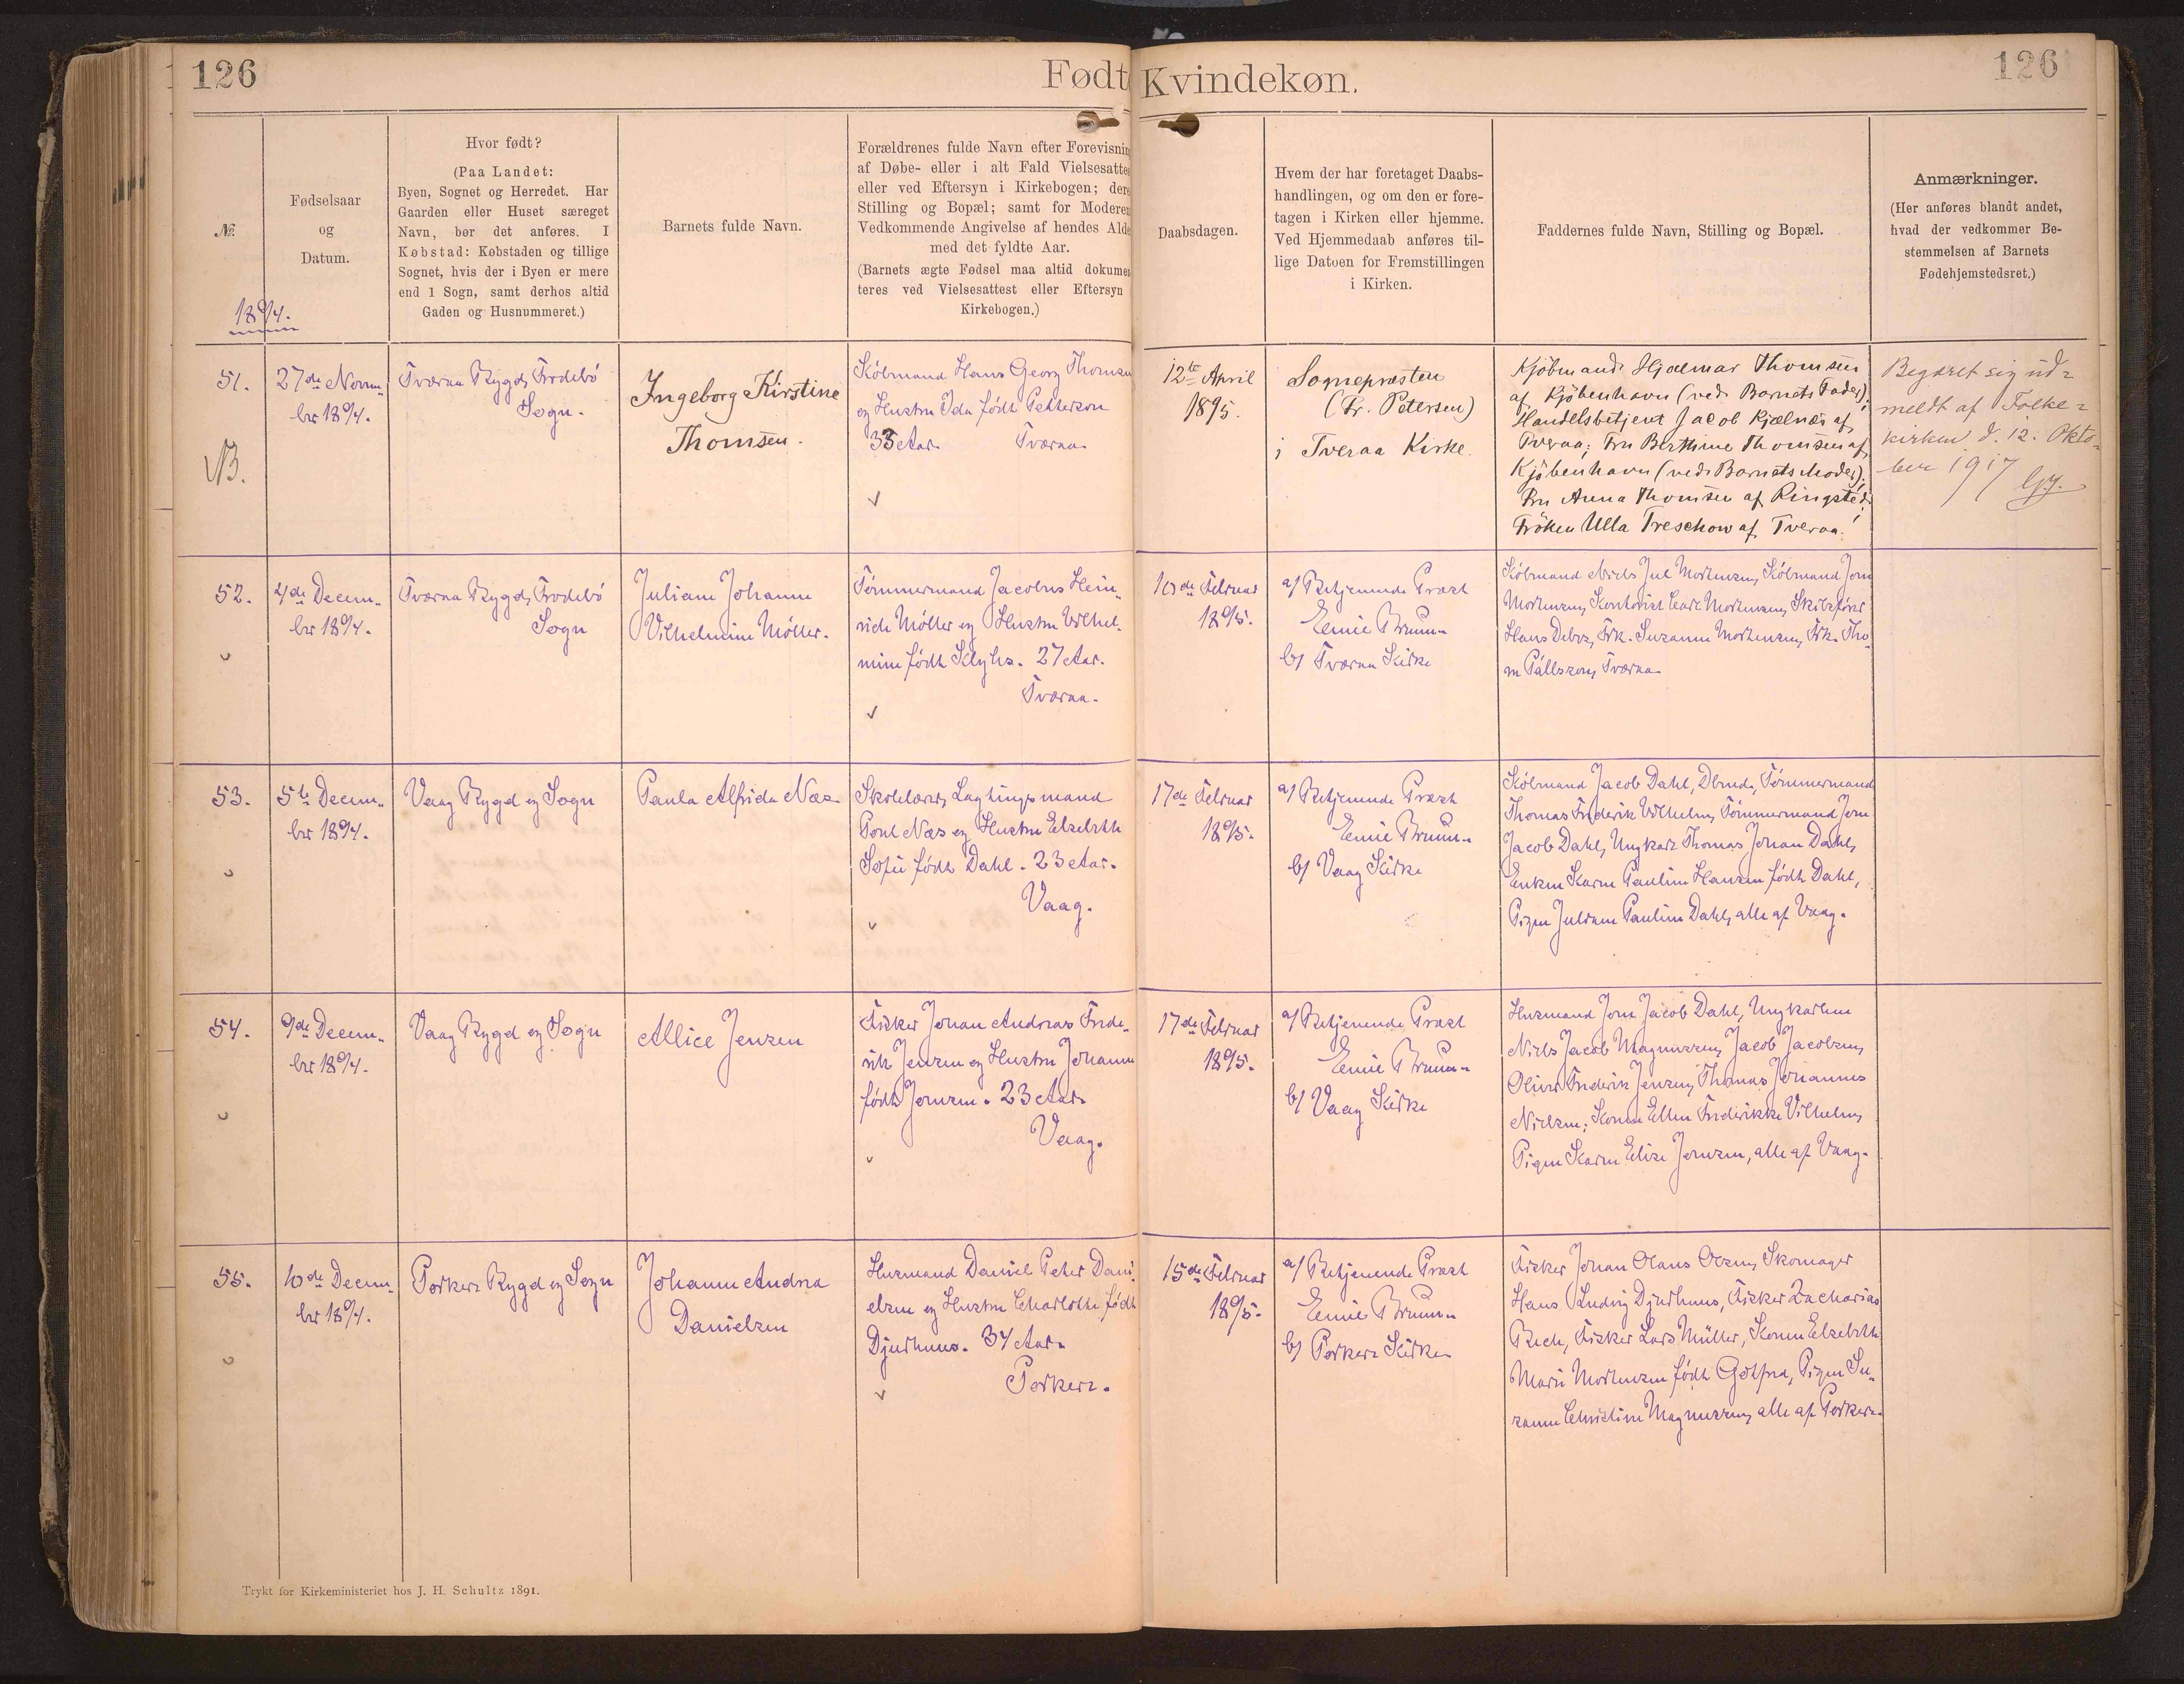 126
Født Kvindekøn.
126
№
Fødselsaar
og
Datum.
Hvor født?
(Paa Landet:
Byen, Sognet og Herredet. Har
Gaarden eller Huset særeget
Navn, bør det anføres. I
Købstad: Købstaden og tillige
Sognet, hvis der i Byen er mere
end 1 Sogn, samt derhos altid
Gaden og Husnummeret.)
Barnets fulde Navn.
Forældrenes fulde Navn efter Forevisnin
af Døbe- eller i alt Fald Vielsesattes
eller ved Eftersyn i Kirkebogen; dere
Stilling og Bopæl; samt for Moderen
Vedkommende Angivelse af hendes Alde
med det fyldte Aar.
(Barnets ægte Fødsel maa altid dokumen
teres ved Vielsesattest eller Eftersyn
Kirkebogen.)
Daabsdagen.
Hvem der har foretaget Daabs-
handlingen, og om den er fore-
tagen i Kirken eller hjemme.
Ved Hjemmedaab anføres til-
lige Datoen for Fremstillingen
i Kirken.
Faddernes fulde Navn, Stilling og Bopæl.
Anmærkninger.
(Her anføres blandt andet,
hvad der vedkommer Be-
stemmelsen af Barnets
Fødehjemstedsret.)
1894.
51.
NB.
27de Novem-
ber 1894.
Tværaa Bygd, Frodebø
Sogn.
Ingeborg Kirstine
Thomsen.
Købmand Hans Georg Thomsen
og Hustru Ida født Petterson
33 Aar. Tværaa
12te April
1895.
Sognepræsten
(Fr. Petersen)
i Tveraa Kirke.
Kjöbmand Hjalmar Thomsen
af Kjöbenhavn (ved Barnets Fader);
Handelsbetjent Jacob Kjælnæs af
Tveraa; Fru Berthine Thomsen af
Kjöbenhavn (ved Barnets Moder);
Fru Anna Thomsen af Ringsted;
Fröken Ulla Treschow af Tveraa!
Begæret sig ud=
meldt af Folke=
kirken d. 12. Okto-
ber 1917
52.
4de Decem-
ber 1894.
Tværaa Bygd, Frodebø
Sogn
Juliane Johanne
Vilhelmine Möller.
Tømmermand Jacobus Hein-
rich Möller og Hustru Vilhel-
mine født 27 Aar.
Tværaa.
10de Februar
1895.
a) Betjenende Præst
Emil Bruun
b) Tværaa Kirke
Købmand Niels Jul Mortensen, Købmand Jorn
Mortensen, Kontorist Carl Mortensen, Skibsfører
Hans Debes, Frk. Susanne Mortensen, Frk. Tho-
ra Pállsson, Tværaa
53.
5te Decem-
ber 1894.
Vaag Bygd og Sogn
Paula Alfrida Næs
Skolelærer, Lagtingsmand
Poul Næs og Hustru Elsebeth
Sofie født Dahl. 23 Aar.
Vaag.
17de Februar
1895.
a) Betjenende Præst
Emil Bruun
b) Vaag Kirke
Købmand Jacob Dahl, Tømmermand
Thomas Frederik Vilhelm, Tømmermand Jorn
Jacob Dahl, Ungkarl Thomas Johan Dahl,
Enken Karen Pauline Hansen født Dahl,
Pigen Juliane Pauline Dahl, alle af Vaag.
54.
9de Decem-
ber 1894.
Vaag Bygd og Sogn
Allice Jensen
Fisker Johan Andreas Frede-
rik Jensen og Hustru Johanne
født Joensen. 23 Aar.
Vaag.
17de Februar
1895.
a) Betjenende Præst
Emil Bruun
b) Vaag Kirke
Husmand Jorn Jacob Dahl, Ungkarlene
Niels Jacob Magnussen, Jacob Jacobsen,
Oliver Frederik Jensen, Thomas Johannes
Nielsen; Konen Ellen Frederikke Vilhelm,
Pigen Karen Elise Joensen, alle af Vaag.
55.
10de Decem-
ber 1894.
Porkers Bygd og Sogn
Johanne Andrea
Danielsen
Husmand Daniel Peter Dani-
elsen og Hustru Charlotte født
Djurhuus. 34 Aar.
Porkers.
15de Februar
1895.
a) Betjenende Præst
Emil Bruun
b) Porkers Kirke
Fisker Johan Olaus Olsen, Skomager
Hans Ludvig Djurhuus, Fisker Zacharias
Bech, Fisker Lars Müller, Konen Elsebeth
Marie Mortensen født Gotfred, Pigen Su-
sanne Christine Magnussen, alle af Porkers.
Trykt for Kirkeministeriet hos J. H. Schultz 1891.